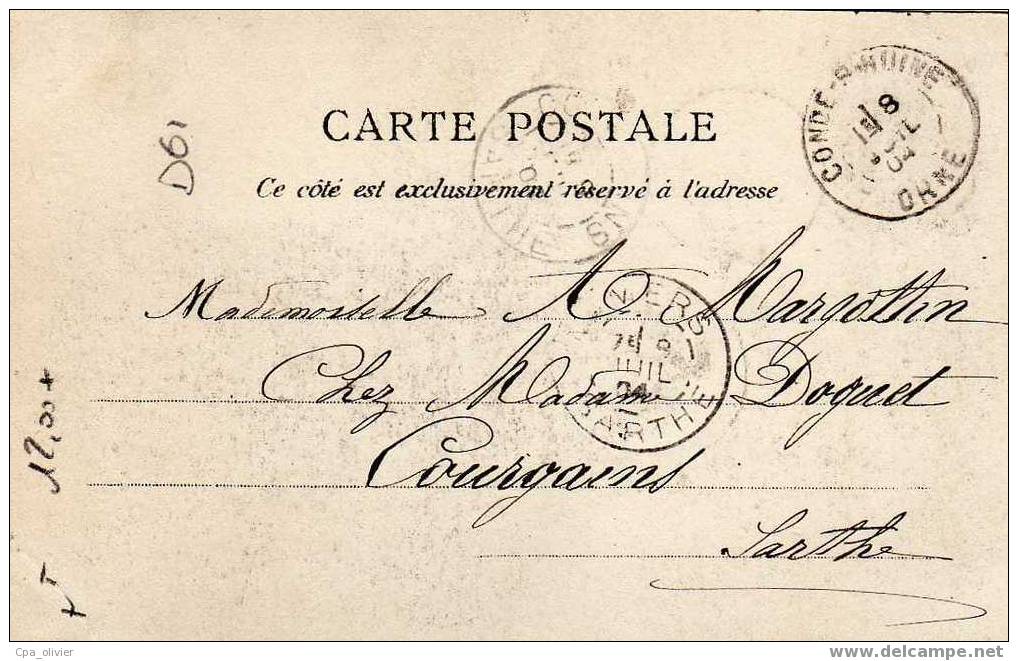 CARTE POSTALE
Ce côté est exclusivement réservé à l'adresse
CONDE-S-HUINE
8
JUIL
04
ORNE
D61
Mademoiselle A. Margottin
Chez Madame Doguet
Courgains
Sarthe
MAMERS
8
JUIL
04
SARTHE
12,00+
Cpa_olivier
www.delcampe.net